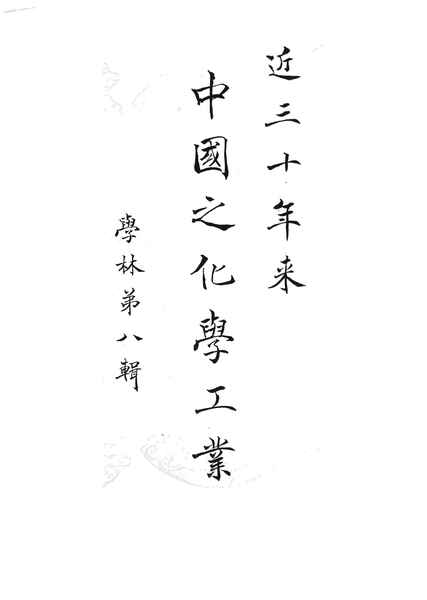 近三十年来
中國之化學工業
學林第八輯